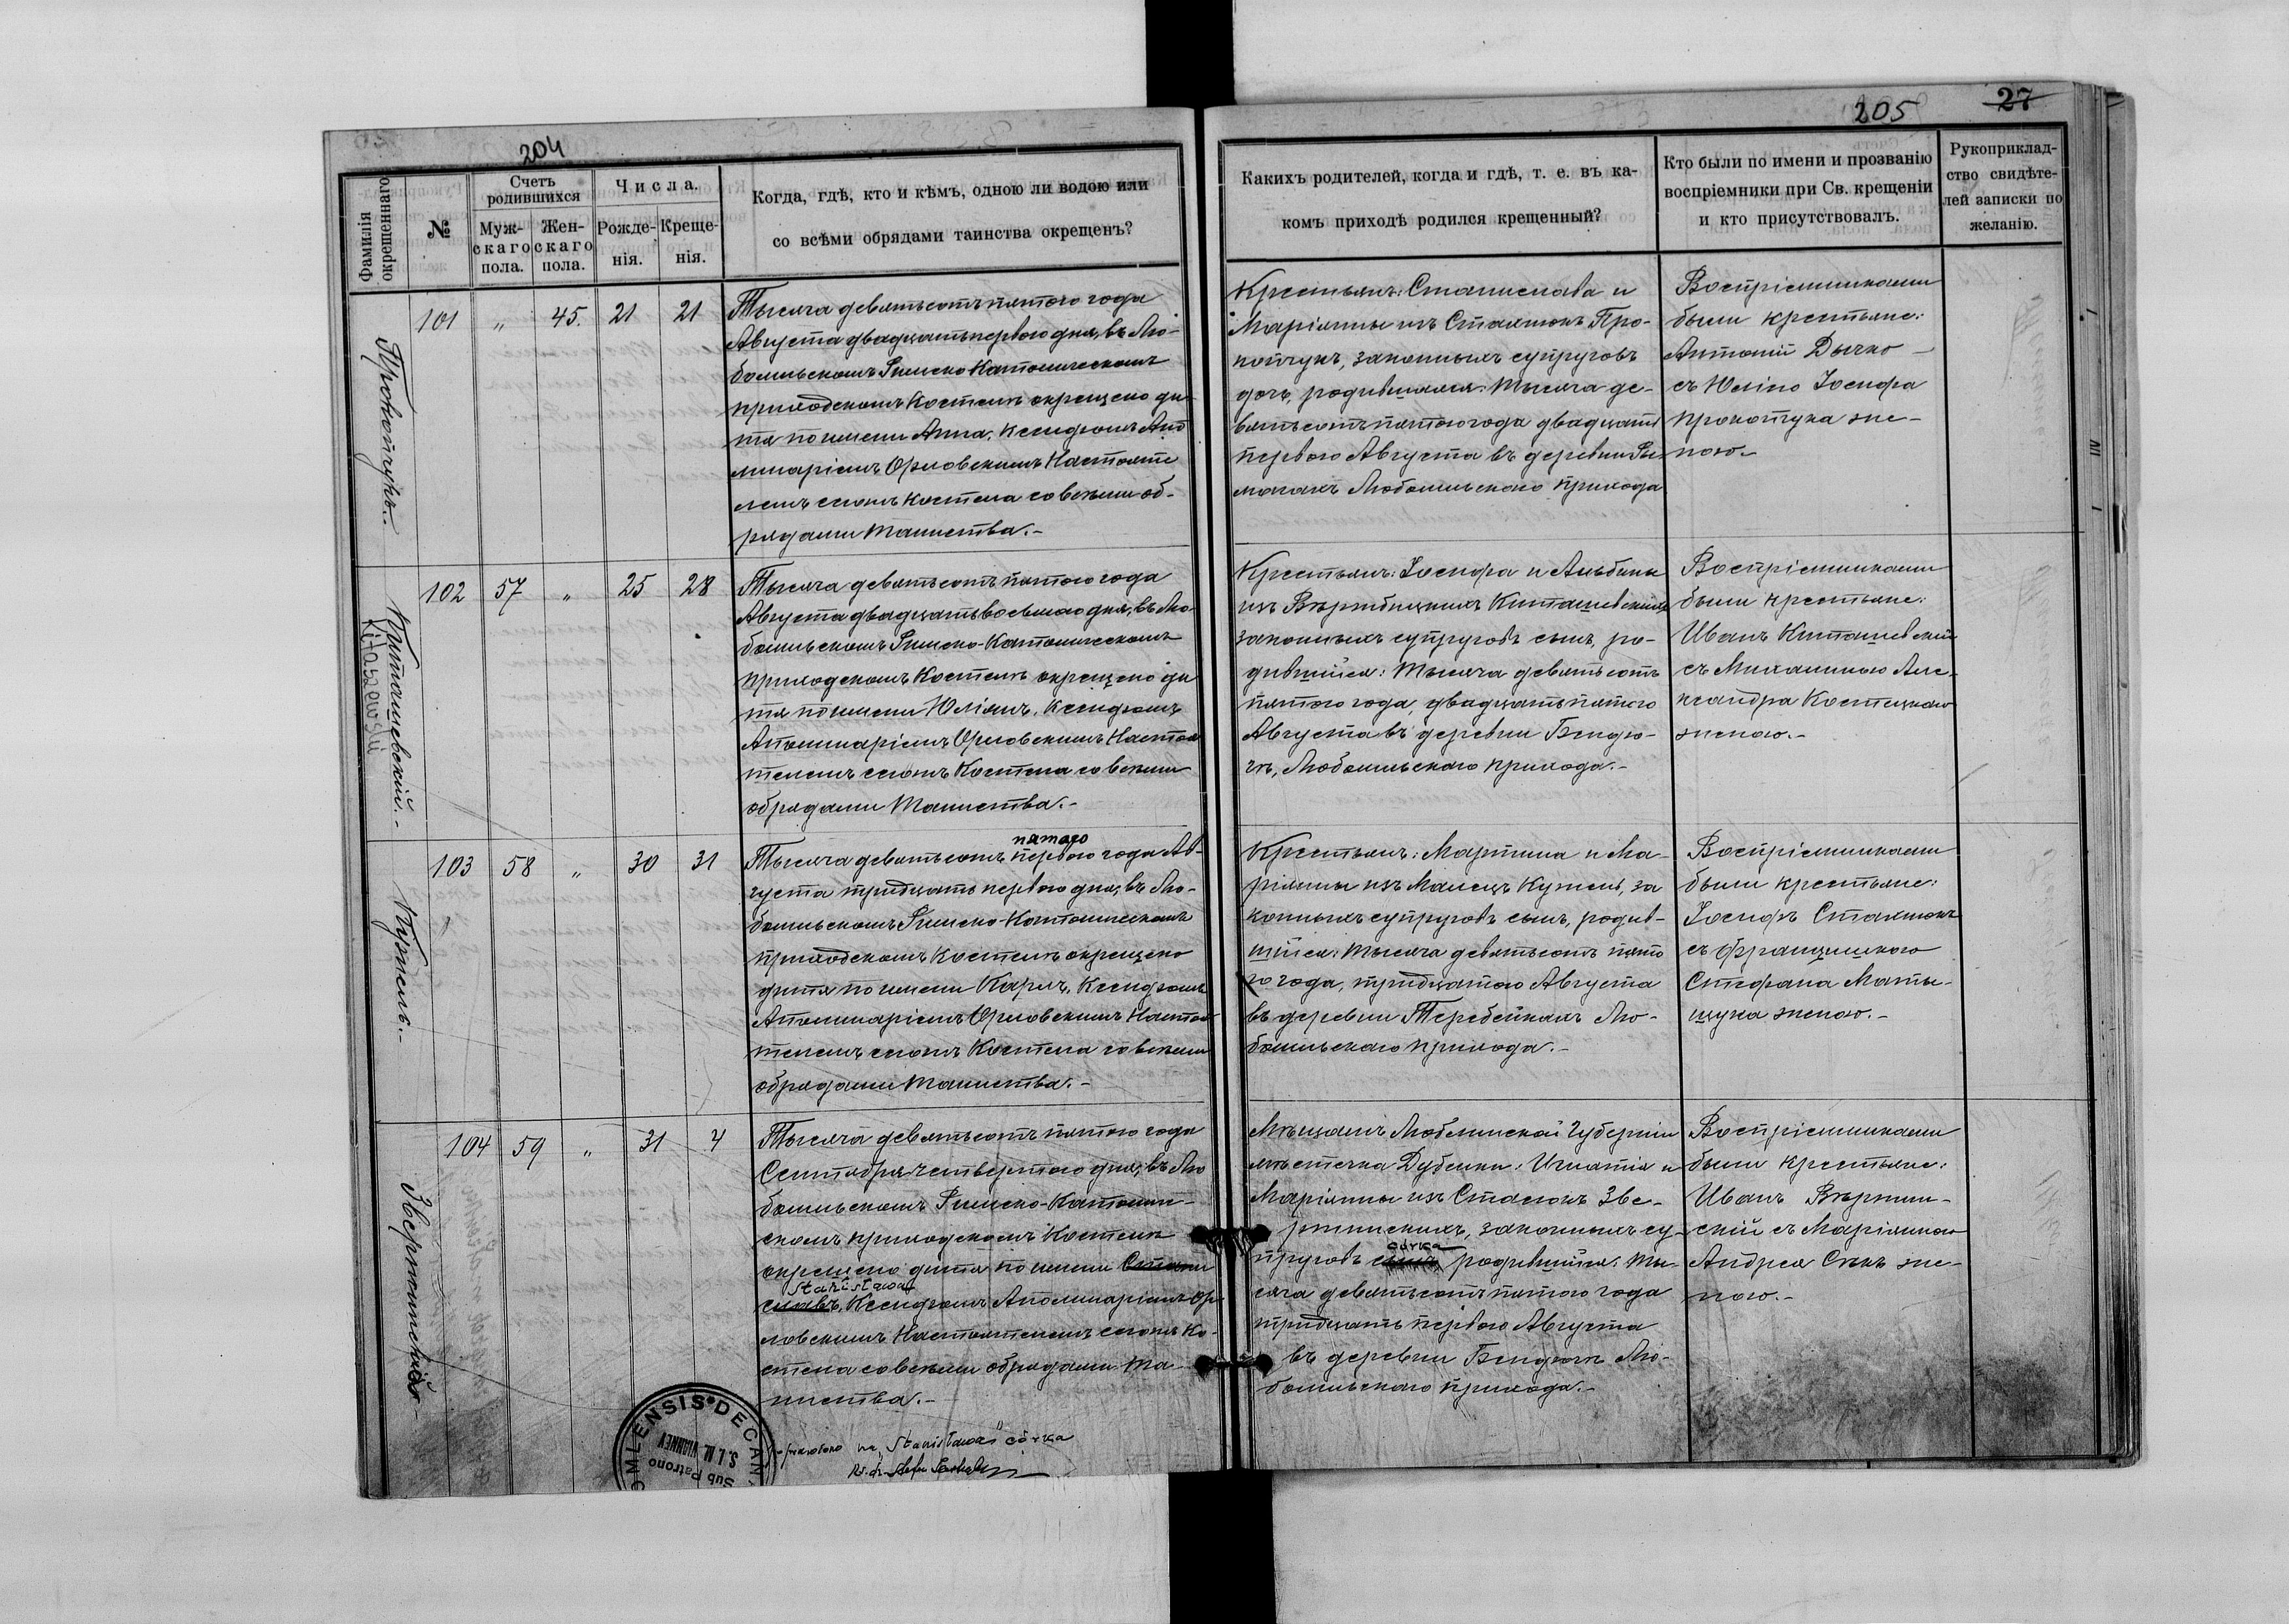 204
Фамилія окрещеннаго
№
Счетъ родившихся
Муж-скаго пола.
Жен-скаго пола.
Числа.
Рожде-нія.
Креще-нія.
Когда, гдѣ, кто и кѣмъ, одною ли водою или
со всѣми обрядами таинства окрещенъ?
Прокопчукъ.
101 „ 45. 21 21
Тысяча девятьсотъ пятого года
Августа двадцать первого дня, въ Лю-
бомльскомъ Римско Католическомъ
приходскомъ Костелѣ окрещено ди
тя по имени Анна, Ксендзомъ Апо
линаріемъ Орловскимъ Настояте
лемъ сего Костела со всѣми об-
рядами Таинства.-
Киташевскій.-
Kitaszewski
102 57 „ 25 28
Тысяча девятьсотъ пятого года
Августа двадцать восьмого дня, въ Лю-
бомльскомъ Римско-Католическомъ
приходскомъ Костелѣ окрещено ди
тя по имени Юліянъ, Ксендзомъ
Аполинаріемъ Орловскимъ Настоя
телемъ сего Костела со всѣми
обрядами Таинства.-
Кужель.-
103 58 „ 30 31
пятого
Тысяча девятьсотъ первого года Ав-
густа тридцать первого дня, въ Лю-
бомльскомъ Римско-Католическомъ
приходскомъ Костелѣ окрещено
дитя по имени Карлъ, Ксендзомъ
Аполинаріемъ Орловскимъ Настоя
телемъ сего Костела со всѣми
обрядами Таинства.-
104 59 „ 31 4
Тысяча девятьсотъ пятого года
Сентября четвертого дня, въ Лю
бомльскомъ Римско-Католиче-
скомъ приходскомъ Костелѣ
окрещено дитя по имени Стани
Stanisława
славъ, Ксендзомъ Аполинаріемъ Ор
ловскимъ Настоятелемъ сего Ко-
стела со всѣми обрядами Та-
инства.-
na „Stanisława" córka
MLENSIS * DECAN
S. I. M. VIANNEY
Sub Patrono
205
27
Какихъ родителей, когда и гдѣ, т. е. въ ка-
комъ приходѣ родился крещенный?
Кто были по имени и прозванію
воспріемники при Св. крещеніи
и кто присутствовалъ.
Рукоприклад-
ство свидѣте-
лей записки по
желанію.
Крестьянъ: Станислава и
Маріянны изъ Стахнюкъ Про-
копчукъ, законныхъ супруговъ
дочь, родившаяся: Тысяча де-
вятьсотъ пятого года двадцать
первого Августа въ деревни Ры
мачахъ Любомльского прихода
Воспріемниками
были крестьяне:
Антоній Дычко
съ Юліею Іосифа
Прокопчука же-
ною.-
Крестьянъ: Іосифа и Альбины
изъ Вержбицкихъ Киташевскихъ
законныхъ супруговъ сынъ, ро-
дившійся: Тысяча девятьсотъ
пятого года, двадцать пятого
Августа въ деревни Бендю-
гѣ, Любомльского прихода.-
Воспріемниками
были крестьяне:
Иванъ Киташевскій
съ Михалиною Але-
ксандра Костецкого
женою.-
Крестьянъ: Мартина и Ма-
ріянны изъ Малецъ Кужель, за
конныхъ супруговъ сынъ, родив-
шійся: Тысяча девятьсотъ пято
го года, тридцатого Августа
въ деревни Теребейкахъ Лю-
бомльского прихода.-
Воспріемниками
были крестьяне:
Іосифъ Стахнюкъ
съ Францишкою
Стефана Маты-
щука женою.-
Мѣщанъ Люблинской Губерніи
мѣстечка Дубенки: Игнатія и
Маріянны изъ Стасюкъ Зве-
ржинскихъ, законныхъ су-
córka
пруговъ сынъ родившійся: Ты-
сяча девятьсотъ пятого года
тридцать первого Августа
въ деревни Бендюгѣ Лю-
бомльского прихода.-
Воспріемниками
были крестьяне:
Иванъ Вержин-
скій съ Маріянною
Андрея Сѣкъ же-
ною.-